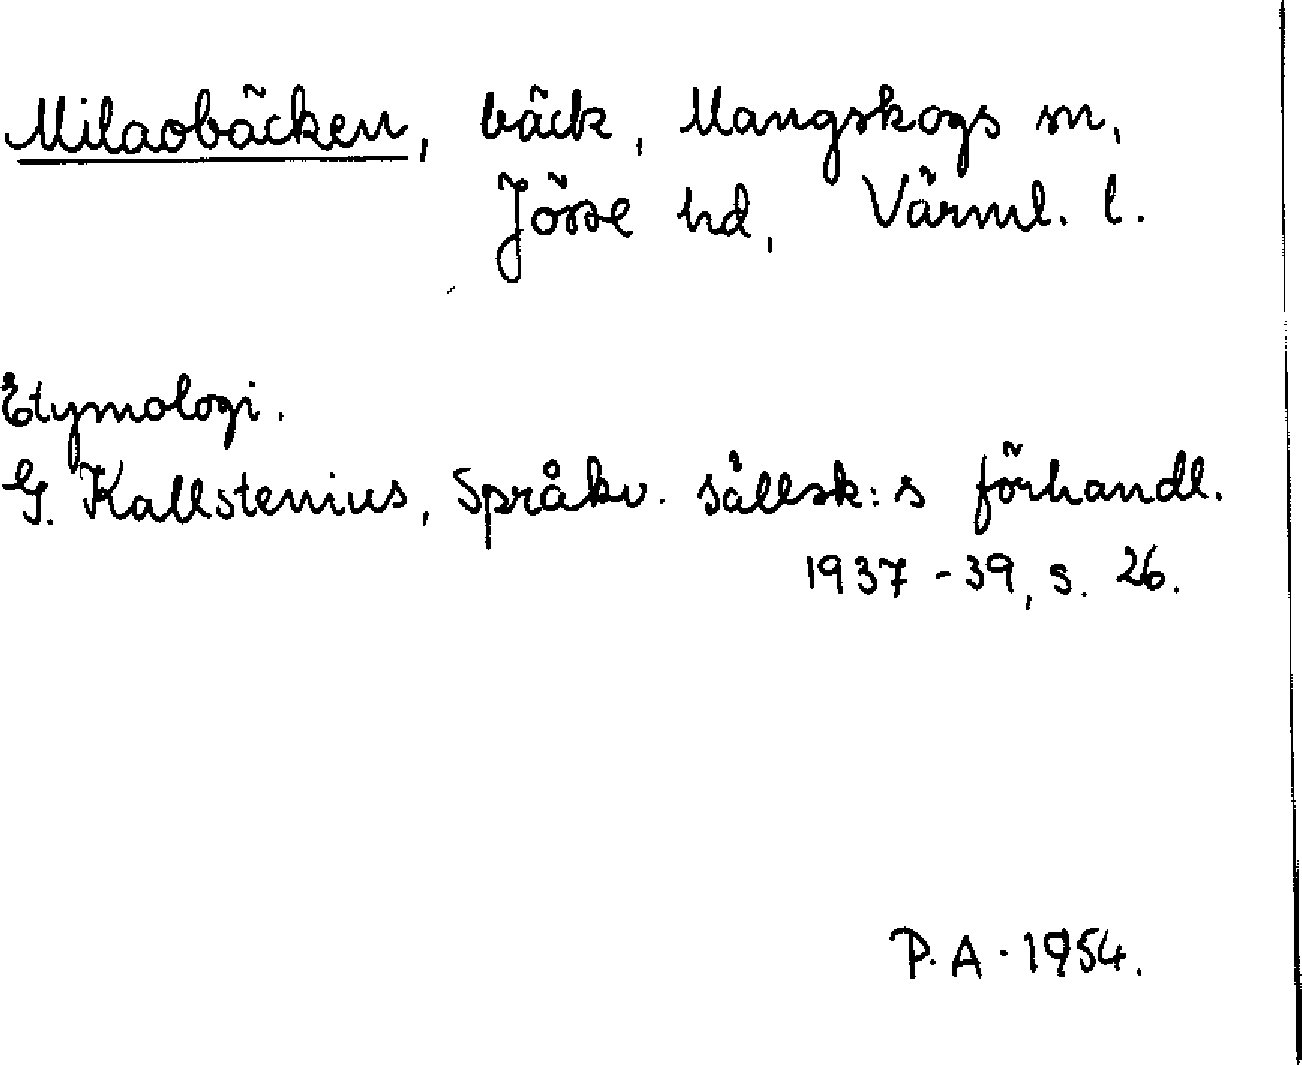 Milaobäcken, bäck, Mangskogs sn,
Jösse hd, Värml. l.
Etymologi.
G. Kallstenius, Språkv. sällsk:s förhandl.
1937-39, s. 26.
P. A. 1954.